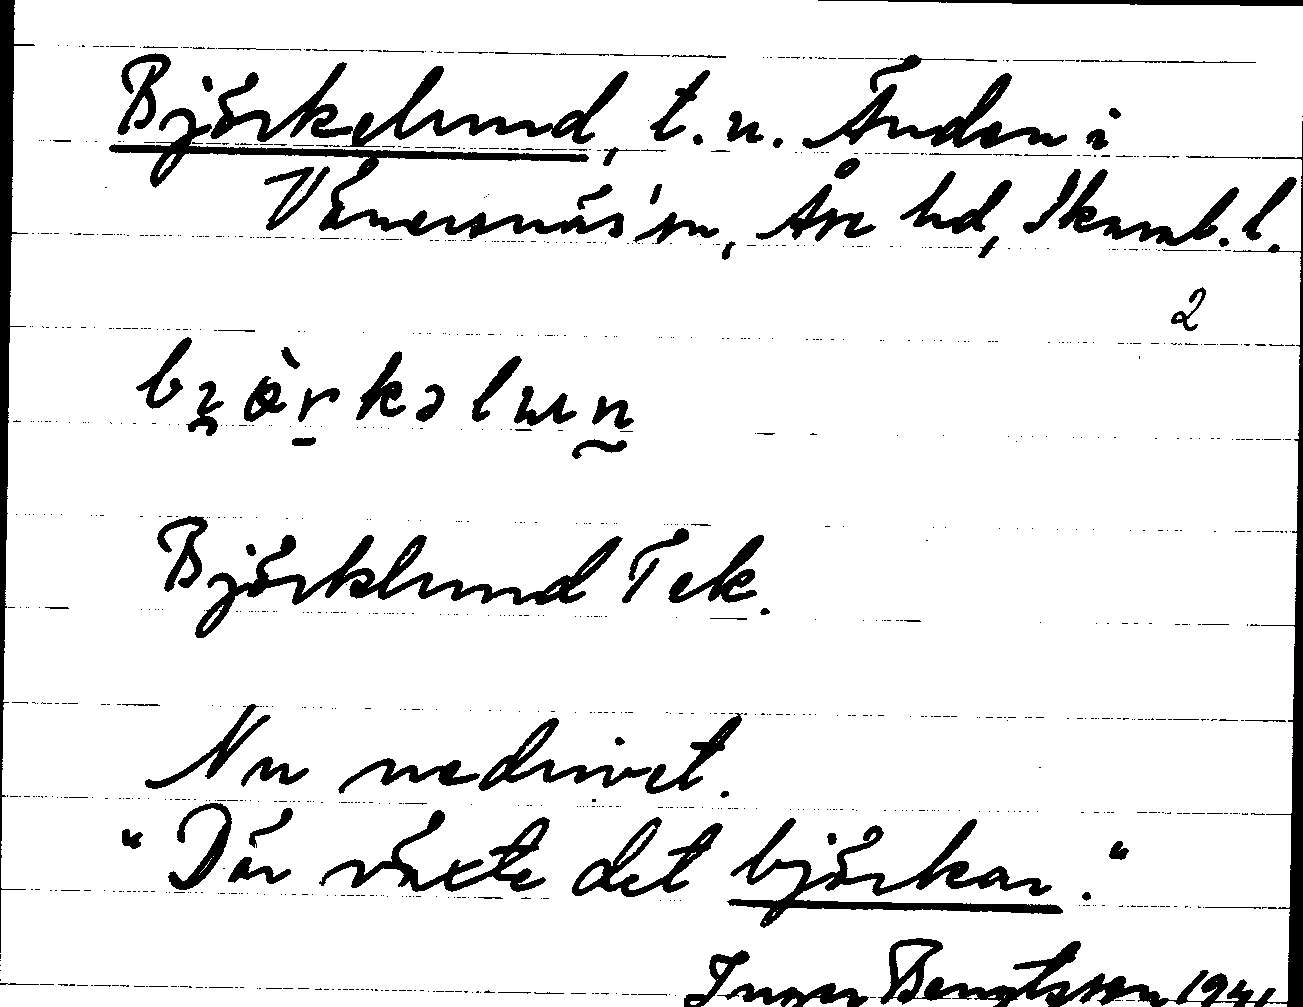 Björkelund, t. u. Änden i
Vänersnäs sn, Åse hd, Skarab. l.
2
bɀö̀rkəlun
Björklund Tek.
Nu nedrivet.
"Där växte det björkar."
Inger Bengtsson 1941